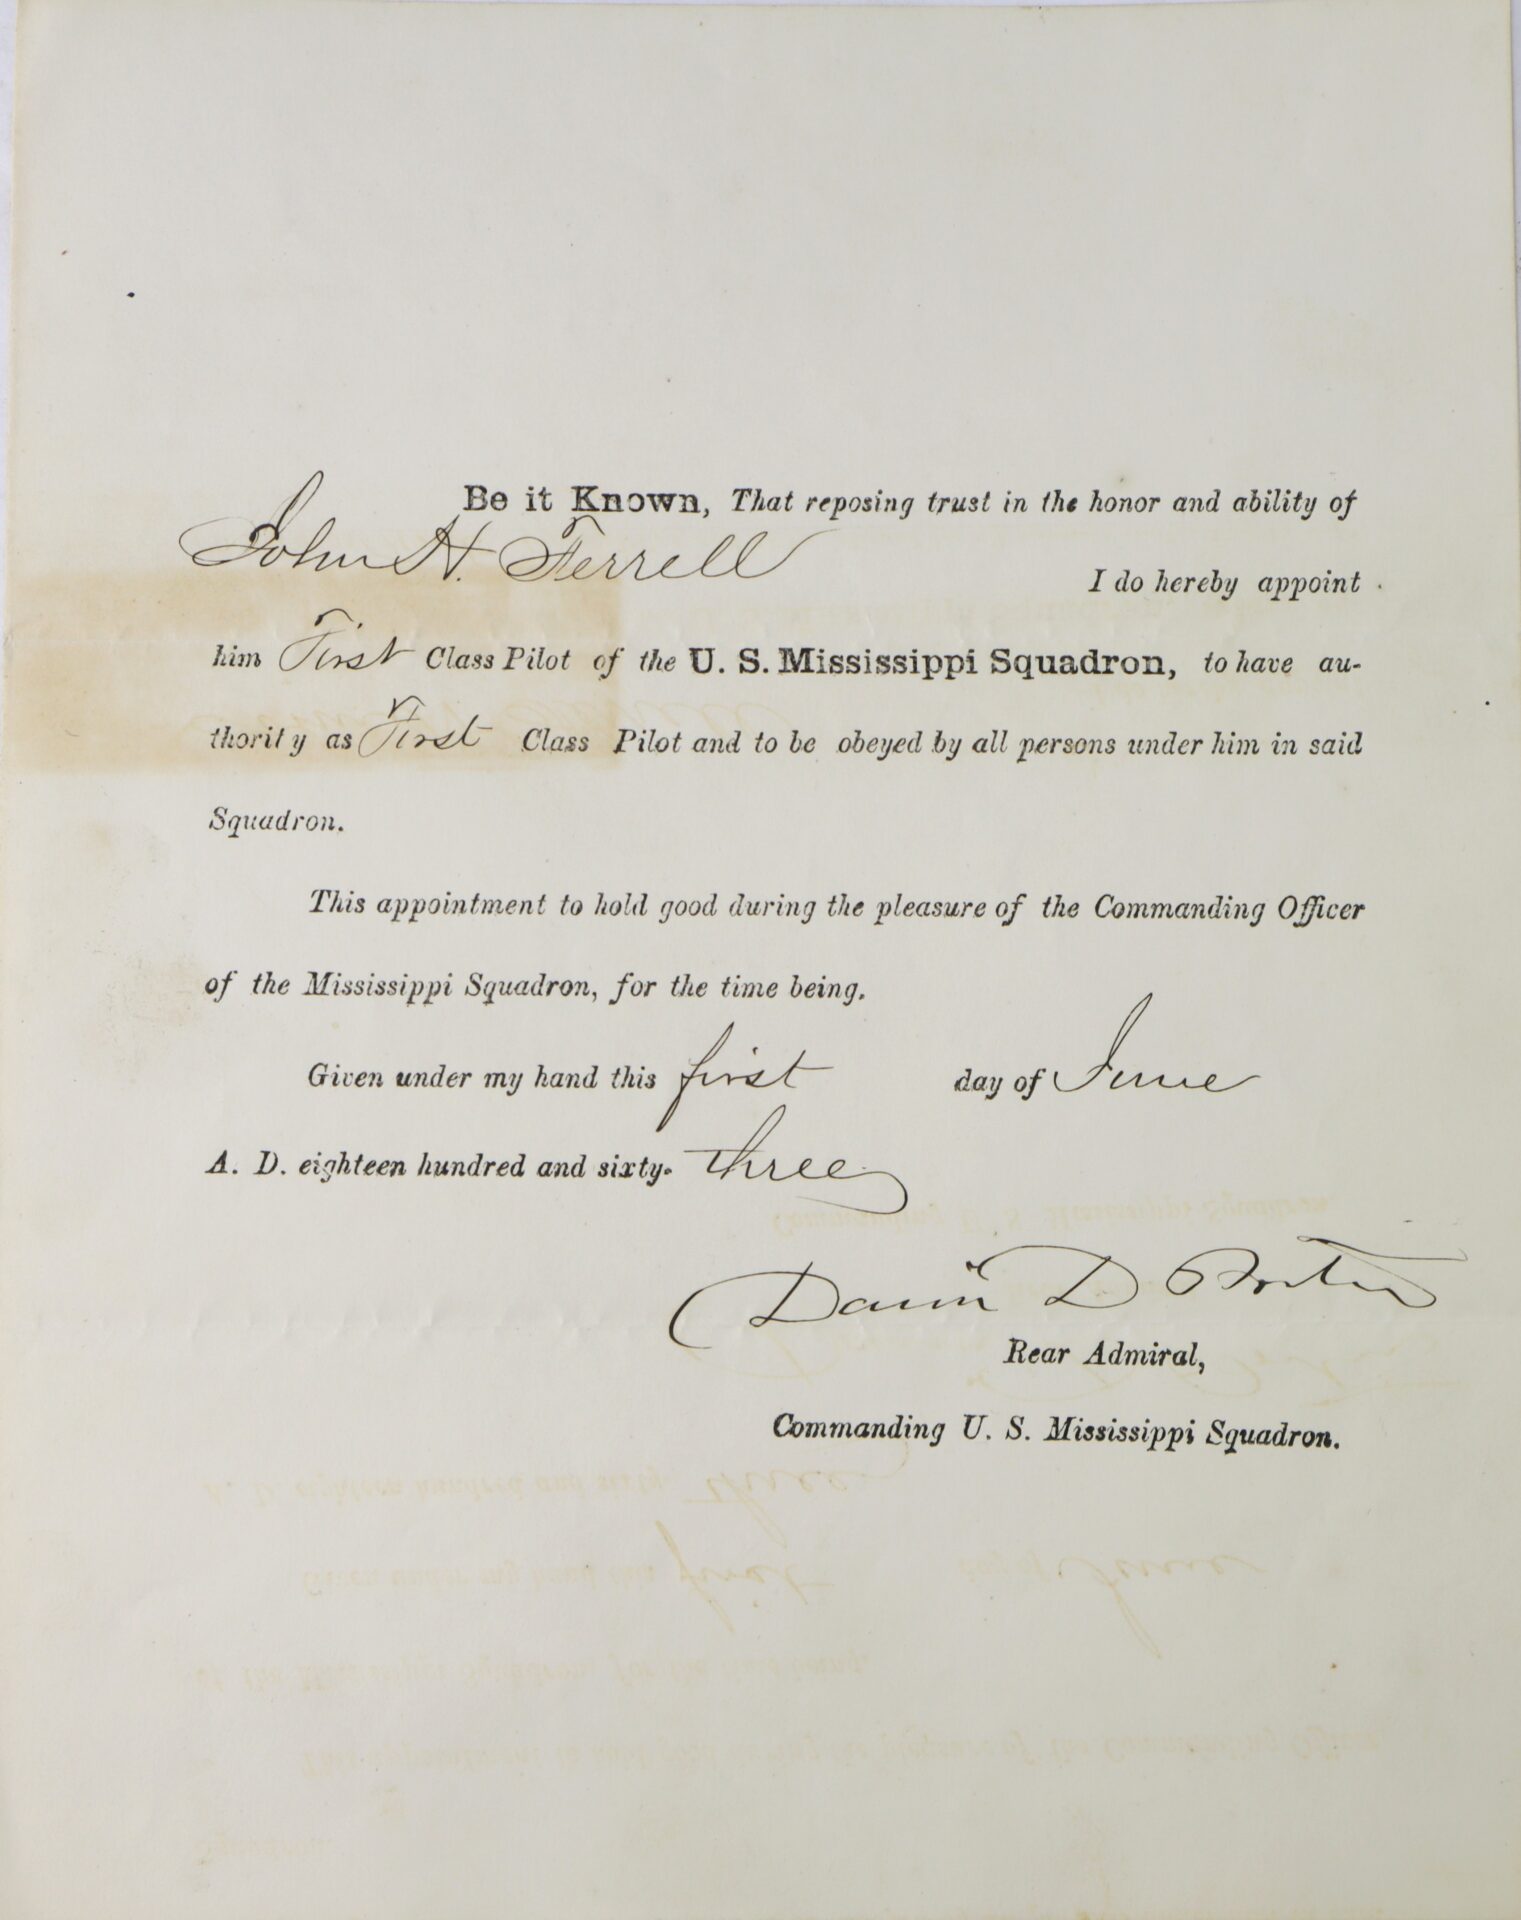 Be it Known, That reposing trust in the honor and ability of
John H. Ferrell I do hereby appoint
him First Class Pilot of the U. S. Mississippi Squadron, to have au-
thority as First Class Pilot and to be obeyed by all persons under him in said
Squadron.
This appointment to hold good during the pleasure of the Commanding Officer
of the Mississippi Squadron, for the time being.
Given under my hand this first day of June
A. D. eighteen hundred and sixty- three
David D Porter
Rear Admiral,
Commanding U. S. Mississippi Squadron.